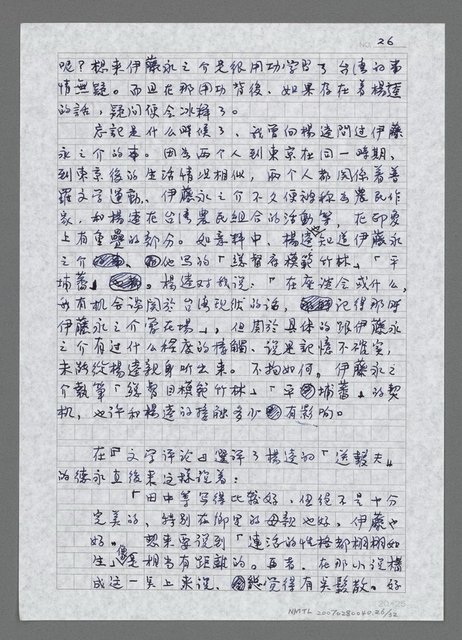 26
呢?想来伊藤永之介是很用功学習了台湾的事
情無疑。而且在那用功背後,如果存在着楊逵
的話,疑问便会冰釋了。
忘記是什么時候了,我曾向楊逵問过伊藤
永之介的事。因为两个人到東京在同一時期,
到東京後的生活情况相似,两个人都関係着普
羅文学運動,伊藤永之介不久便被称为農民作
家,和楊逵在台湾農民組合的活動等,在印象
上有重疊的部分。如意料中,楊逵也知道伊藤永
之介,他写的「総督府模範竹林」、「平
埔蕃」。楊逵对我说:「在座談会或什么,
我有机会談関於台湾現狀的話,記得那时
伊藤永之介常在場」,但関於具体的跟伊藤永
之介有过什么程度的接触,说是記憶不確実,
未能從楊逵親身听出来。不拘如何,伊藤永之
介執筆「総督府模範竹林」「平埔蕃」的契
机,也许和楊逵的接触多少有影响。
在『文学評论』選評了楊逵的「送報夫」
的德永直後来这樣说着:
「田中等写得比較好,但絕不是十分
完美的,特别在鄉里的母親也好,伊藤也
好。想来要说到「連活的性格都栩栩如
生」像是相当有距離的。再者,在那小说構
成这一点上来说,也觉得有点鬆散。好
NMTL 20070280040.26/32